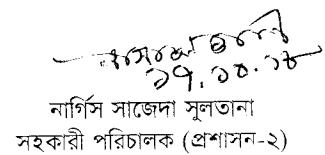 ১৭.১০.১৮
নার্গিস সাজেদা সুলতানা
সহকারী পরিচালক (প্রশাসন-২)